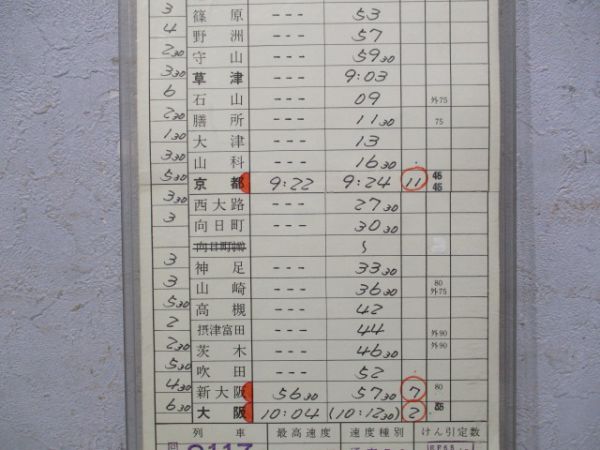 3 篠原 --- 53
4 野洲 --- 57
2 30 守山 --- 59 30
3 30 草津 --- 9:03
6 石山 --- 09 外75
2 30 膳所 --- 11 30 75
1 30 大津 --- 13
3 30 山科 --- 16 30
5 30 京都 9:22 9:24 11
3 30 西大路 --- 27 30
3 向日町 --- 30 30
3 神足 --- 33 30
3 山崎 --- 36 30 80 外75
5 30 高槻 --- 42
2 摂津富田 --- 44 外90
2 30 茨木 --- 46 30 外90
5 30 吹田 --- 52
4 30 新大阪 56 30 57 30 7 80
6 30 大阪 10:04 (10:12 30) 2
列車 最高速度 速度種別 けん引定数